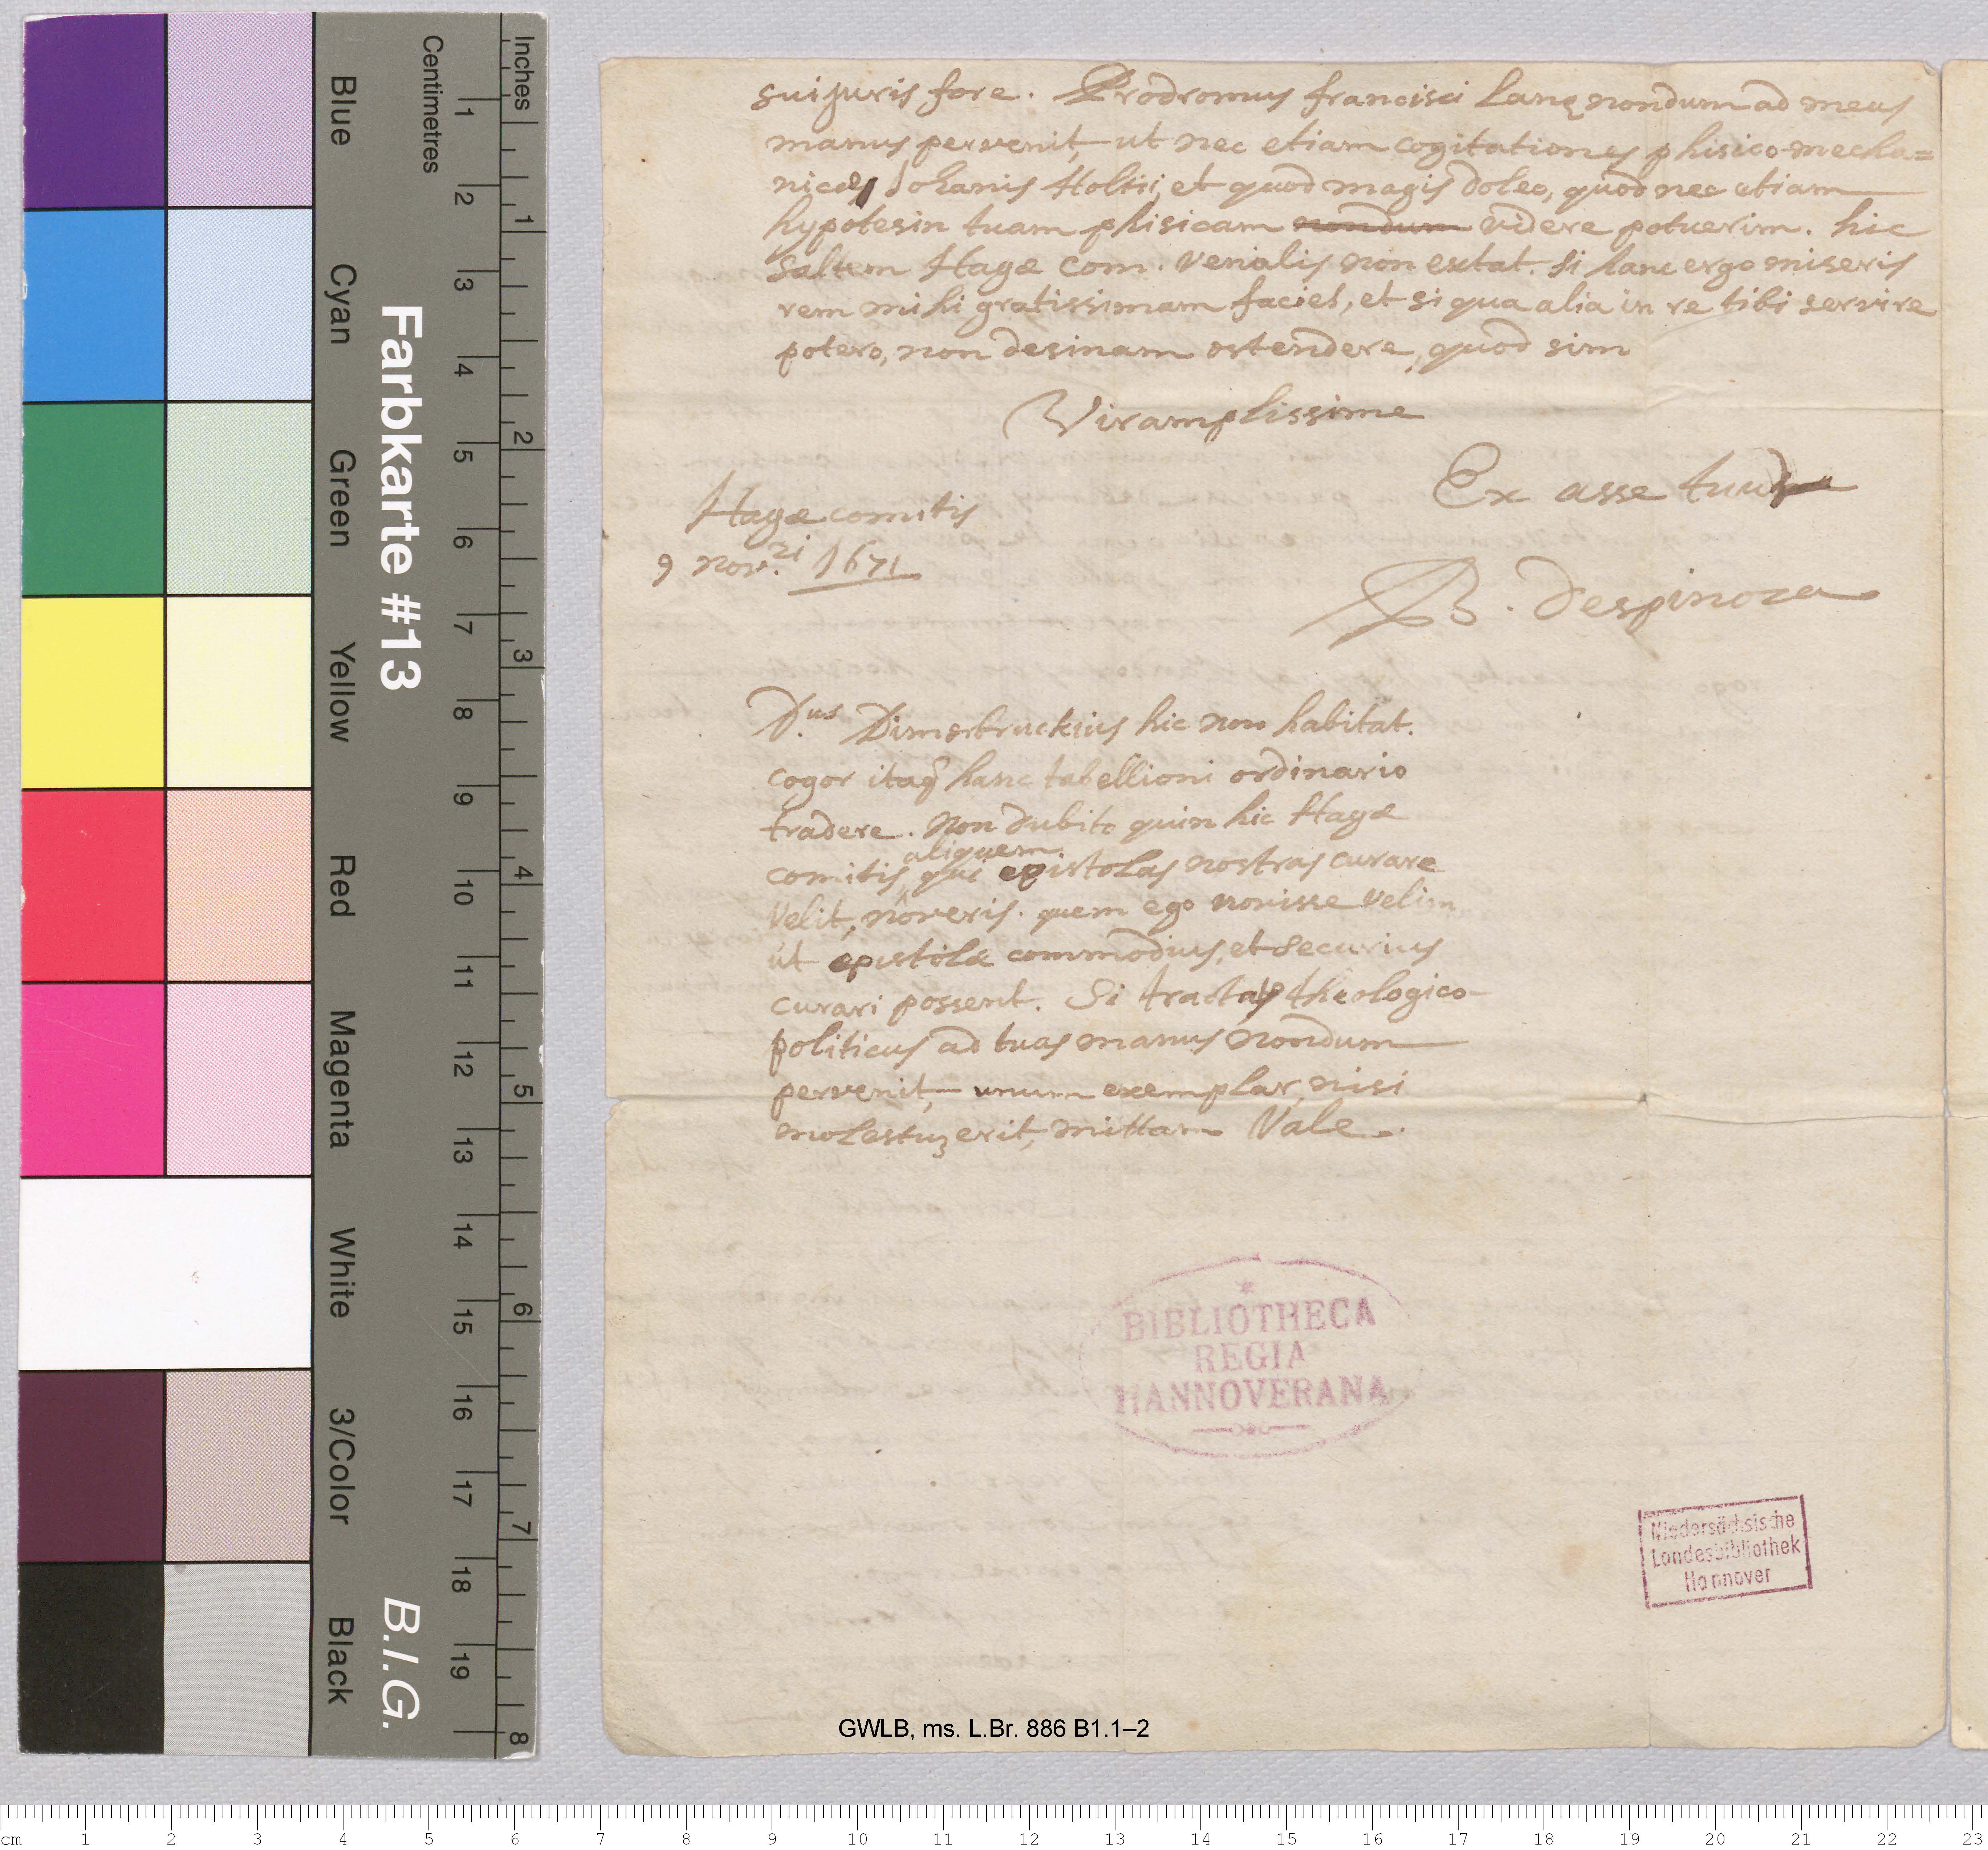 sui juris fore. Prodromus francisci Lanę nondum ad meas
manus pervenit, ut nec etiam cogitationes phisico-mecha=
nicæ Johanis Holtii, et quod magis doleo, quod nec etiam
hypotesin tuam phisicam nondum videre potuerim. hic
saltem Hagæ com. venialis non extat. si hanc ergo miseris
rem mihi gratissimam facies, et si qua alia in re tibi servire
potero, non desinam ostendere, quod sim
Vir amplissime
Ex asse tuus
Hagæ comitis
9 nov.ri 1671
B. despinoza
D.us Dimerbruckius hic non habitat.
cogor itaq hanc tabellioni ordinario
tradere. Non dubito quin hic Hagæ
aliquem
comitis, qui epistolas nostras curare
velit, noveris. quem ego novisse velim
ut epistolæ commodius, et securius
curari possent. Si tractatus theologico-
politicus ad tuas manus nondum
pervenit, unum exemplar, nisi
molestum erit, mittam Vale.
BIBLIOTHECA
REGIA
HANNOVERANA
Niedersächsische
Landesbibliothek
Hannover
GWLB, ms. L.Br. 886 B1.1–2
Inches
1
2
3
4
5
6
7
8
Centimetres
1
2
3
4
5
6
7
8
9
10
11
12
13
14
15
16
17
18
19
Farbkarte #13
B.I.G.
Blue
Cyan
Green
Yellow
Red
Magenta
White
3/Color
Black
cm 1 2 3 4 5 6 7 8 9 10 11 12 13 14 15 16 17 18 19 20 21 22 23